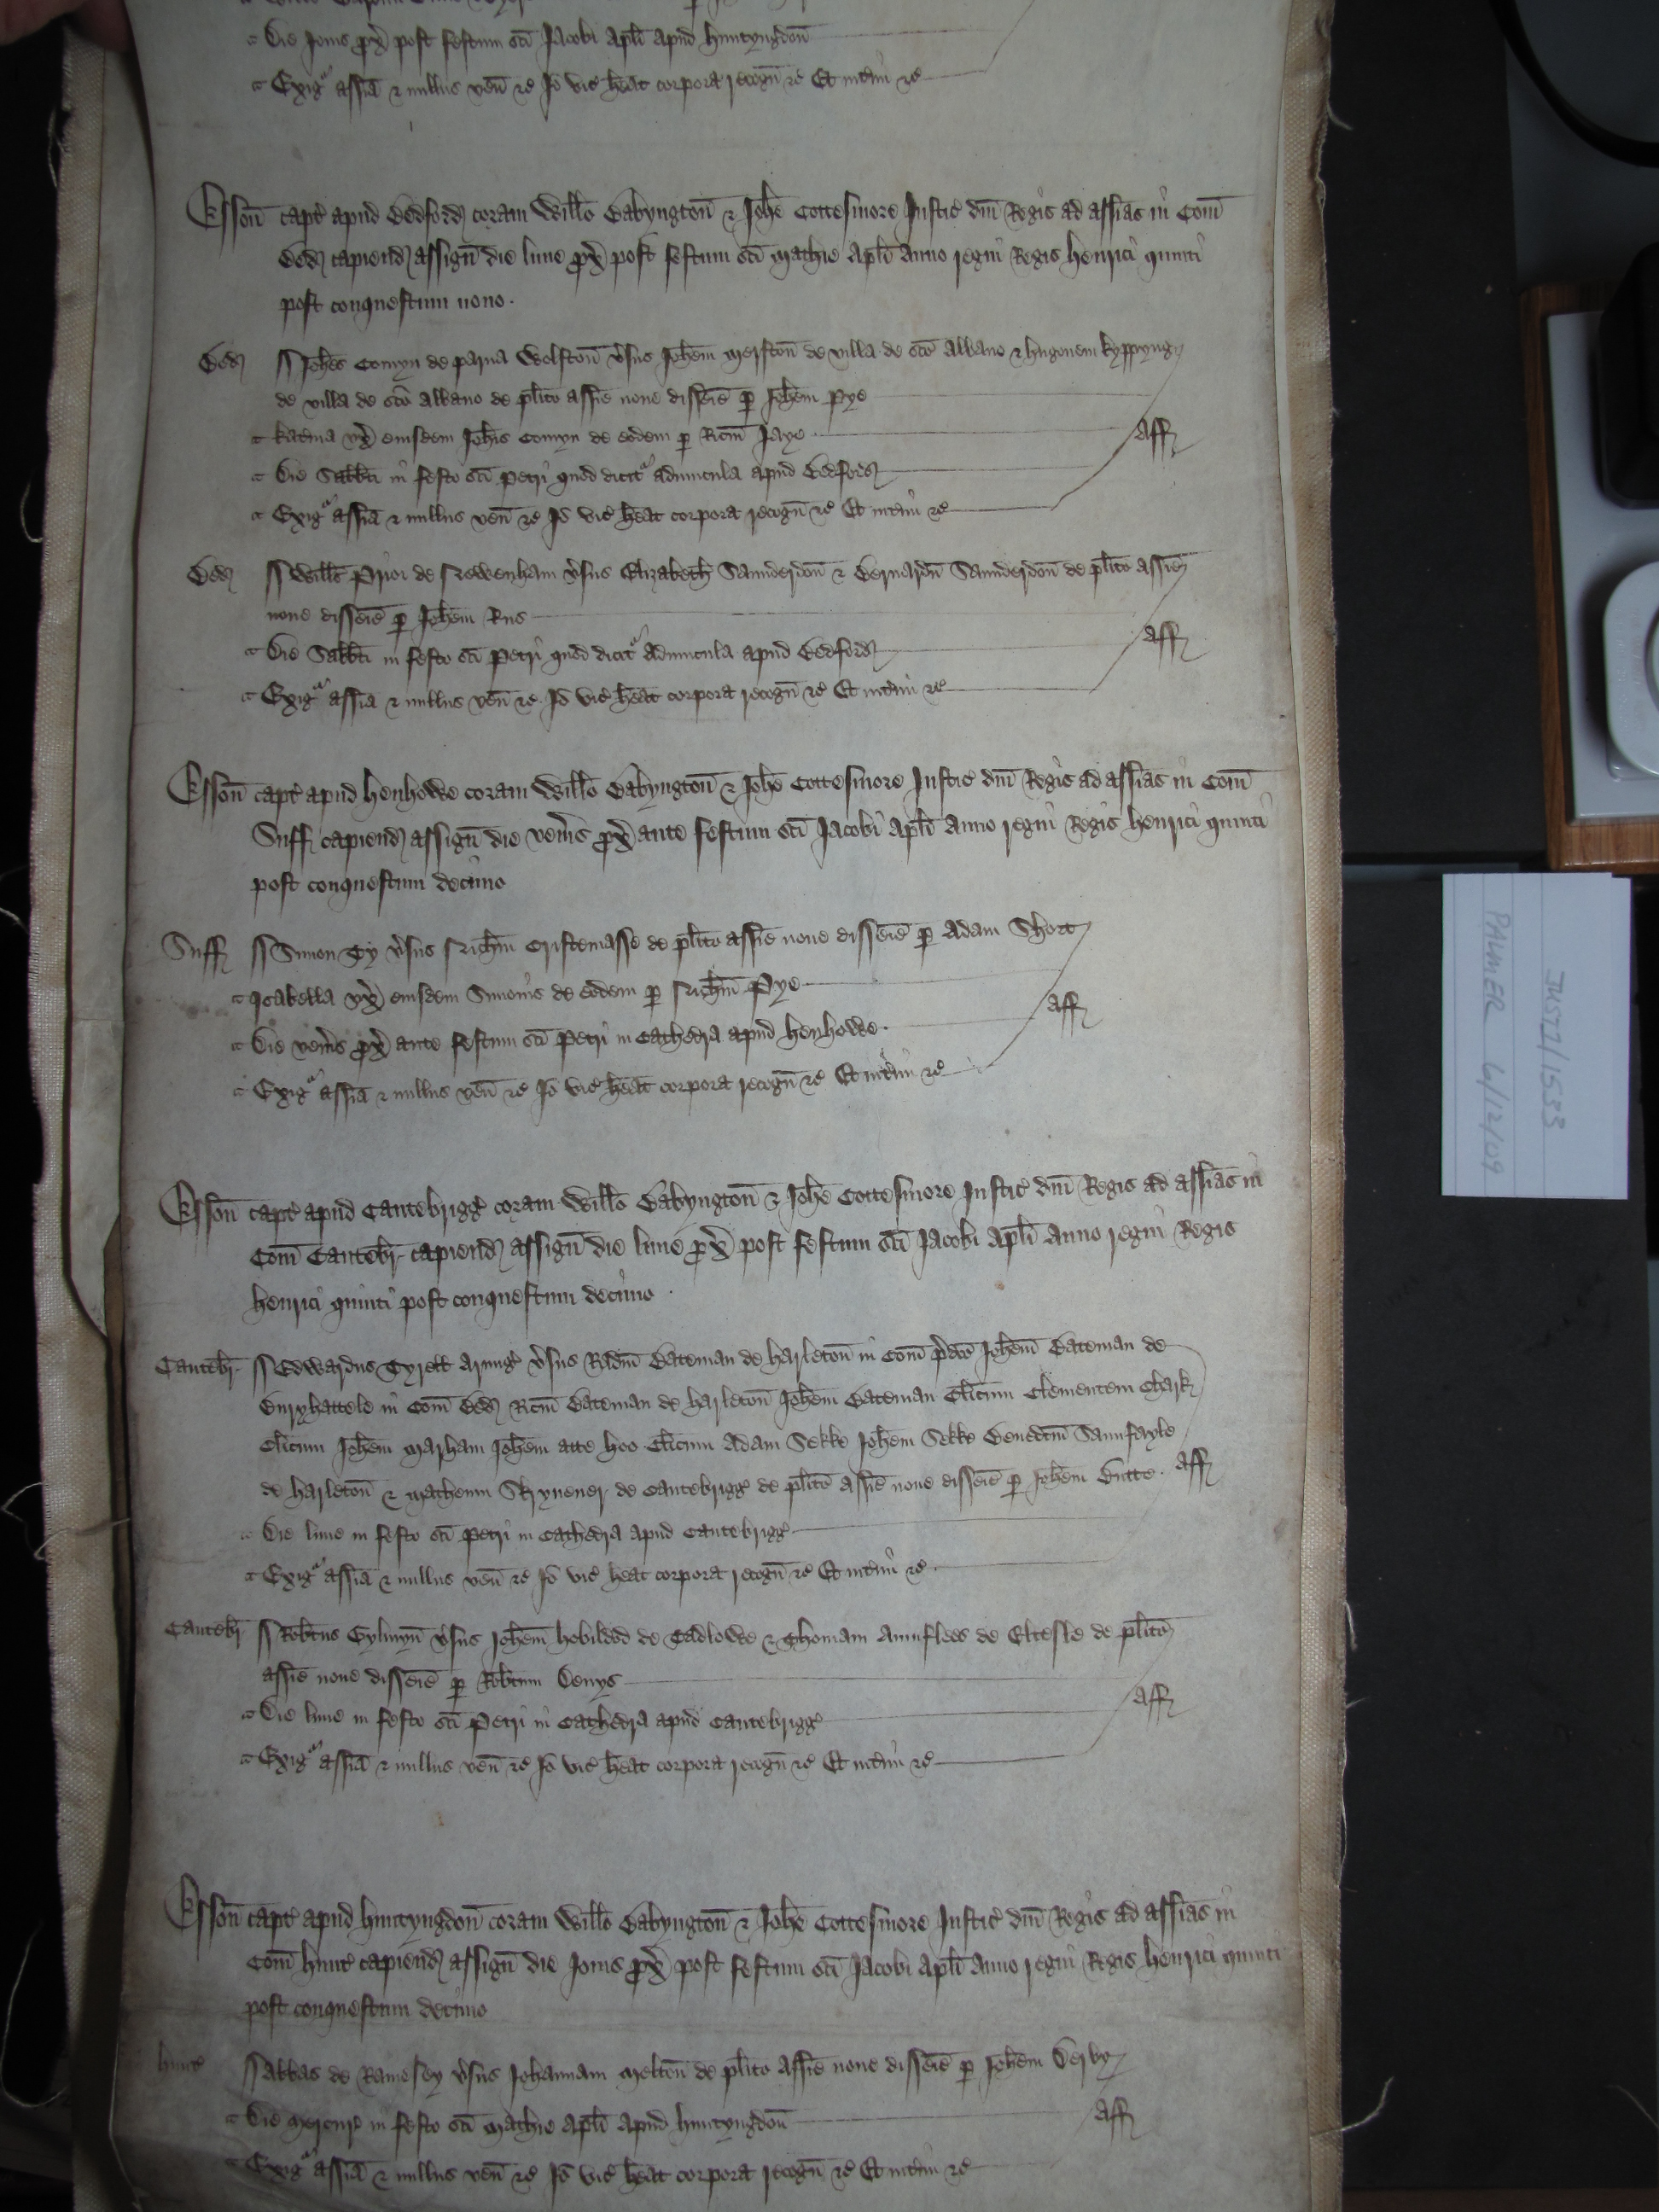 Die Jovis px̄ post festum sc̄i Jacobi Apl̄i apud Huntyngdon̄
Exigr assīa & nullus ven̄ &c Iō vic̄ hēat corpora recogn̄ &c Et int̄im &c
Esson̄ capt̄ apud Bedford coram Will̄o Babyngton̄ & Joh̄e Cottesmore Justic̄ dn̄i Regis ad assīas in Com̄
Bed capiend assign̄ die lune px̄ post festum sc̄i Mathie Apl̄i Anno regni Regis Henrici quinti
post conquestum nono.
Bed Joh̄es Comyn de parua Wolston̄ v̄sus Joh̄em Merston̄ de villa de sc̄o Albano & Hugonem Kyppyng
de villa de sc̄o Albano de pl̄ito assīe noue disseīe p Joh̄em Pye
Kat̄ina vx̄ eiusdem Joh̄is Comyn de eodem p Ric̄m Jaye
Aff
Die Sabb̄ti in festo sc̄i Petri quod dicitr aduincula apud Bedford
Exigr assīa & nullus ven̄ &c Iō vic̄ hēat corpora recogn̄ &c Et int̄im &c
Bed Will̄s Prior de Newenham v̄sus Elizabeth̄ Saunderdon̄ & Bernardn̄ Saunderdon̄ de pl̄ito assīe
noue disseīe p Joh̄em Rus
Aff
Die Sabb̄ti in festo sc̄i Petri quod dicitr Aduincula apud Bedford
Exigr assīa & nullus ven̄ &c Iō vic̄ hēat corpora recogn̄ &c Et int̄im &c
Esson̄ capt̄ apud Henhowe coram Will̄o Babyngton̄ & Joh̄e Cottesmore Justic̄ dn̄i Regis ad assīas in Com̄
Suff capiend assign̄ die ven̄is px̄ ante festum sc̄i Jacobi Apl̄i Anno regni Regis Henrici quinti
post conquestum decimo
Suff Simon Ty v̄sus Nich̄m Cristemasse de pl̄ito assīe noue disseīe p Adam Short
Isabella vx̄ eiusdem Simonis de eodem p Nich̄m Pye
Aff
Die ven̄is px̄ ante festum sc̄i Petri in Cathedra apud Henhowe.
Exigr assīa & nullus ven̄ &c Iō vic̄ hēat corpora recogn̄ &c Et int̄im &c
Esson̄ capt̄ apud Cantebrigḡ coram Will̄o Babyngton̄ & Joh̄e Cottesmore Justic̄ dn̄i Regis ad assīas in
Com̄ Cantebr̄ capiend assign̄ die lune px̄ post festum sc̄i Jacobi Apl̄i Anno regni Regis
Henrici quinti post conquestum decimo
Cantebr̄ Edwardus Tyrell Armiḡ v̄sus Rad̄m Bateman de Harleton̄ in Com̄ p̄dc̄o Joh̄em Bateman de
Buryhattele in Com̄ Bed Ric̄m Bateman de Harleton̄ Joh̄em Bateman Cl̄icum Clementem Clerk
Cl̄icum Joh̄em Marham Joh̄em atte Hoo Cl̄icum Adam Sekke Joh̄em Sekke Bened̄c̄m Saunfayle
de Harleton̄ & Matheum Skynener de Cantebrigḡ de pl̄ito assīe noue disseīe p Joh̄em Butte. Aff
Die lune in festo sc̄i Petri in Cathedra apud Cantebrigḡ
Exigr assīa & nullus ven̄ &c Iō vic̄ hēat corpora recogn̄ &c Et int̄im &c
Cantebr̄ Rob̄tus Gylmyn̄ v̄sus Joh̄em Hobildod de Tadlowe & Thomam Aunflees de Eltesle de pl̄ito
assīe noue disseīe p Rob̄tum Denys
Aff
Die lune in festo sc̄i Petri in Cathedra apud Cantebrigḡ
Exigr assīa & nullus ven̄ &c Iō vic̄ hēat corpora recogn̄ &c Et int̄im &c
Esson̄ capt̄ apud Huntyngdon̄ coram Will̄o Babyngton̄ & Joh̄e Cottesmore Justic̄ dn̄i Regis ad assīas in
Com̄ Hunt̄ capiend assign̄ die Jovis px̄ post festum sc̄i Jacobi Apl̄i Anno regni Regis Henrici quinti
post conquestum decimo
Hunt̄ Abbas de Ramesey v̄sus Johannam Melton̄ de pl̄ito Assīe noue disseīe p Joh̄em Derby
Die Mercur̄ in festo sc̄i Mathie Apl̄i apud Huntyngdon̄ Aff
Exigr assīa & nullus ven̄ &c Iō vic̄ hēat corpora recogn̄ &c Et int̄im &c
JUST1/1533
PALMER 6/12/09